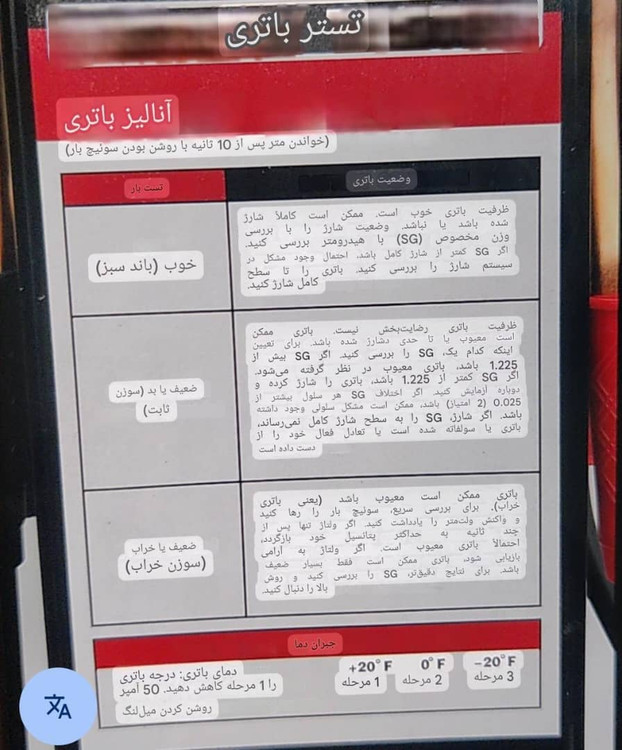 تستر باتری
آنالیز باتری
(خواندن متر پس از 10 ثانیه با روشن بودن سوئیچ بار)
تست بار
وضعیت باتری
خوب (باند سبز)
ظرفیت باتری خوب است. ممکن است کاملاً شارژ
شده باشد یا نباشد. وضعیت شارژ را با بررسی
وزن مخصوص (SG) با هیدرومتر بررسی کنید.
اگر SG کمتر از شارژ کامل باشد، احتمال وجود مشکل در
سیستم شارژ را بررسی کنید. باتری را تا سطح
کامل شارژ کنید.
ضعیف یا بد (سوزن
ثابت)
ظرفیت باتری رضایت‌بخش نیست. باتری ممکن
است معیوب یا تا حدی دشارژ شده باشد. برای تعیین
اینکه کدام یک، SG را بررسی کنید. اگر SG بیش از
1.225 باشد، باتری معیوب در نظر گرفته می‌شود.
اگر SG کمتر از 1.225 باشد، باتری را شارژ کرده و
دوباره آزمایش کنید. اگر اختلاف SG هر سلول بیشتر از
0.025 (2 امتیاز) باشد، ممکن است مشکل سلولی وجود داشته
باشد. اگر شارژ، SG را به سطح شارژ کامل نمی‌رساند،
باتری یا سولفاته شده است یا تعادل فعال خود را از
دست داده است
ضعیف یا خراب
(سوزن خراب)
باتری ممکن است معیوب باشد (یعنی باتری
خراب). برای بررسی سریع، سوئیچ بار را رها کنید
و واکنش ولت‌متر را یادداشت کنید. اگر ولتاژ تنها پس از
چند ثانیه به حداکثر پتانسیل خود بازگردد،
احتمالاً باتری معیوب است. اگر ولتاژ به آرامی
بازیابی شود، باتری ممکن است فقط بسیار ضعیف
باشد. برای نتایج دقیق‌تر، SG را بررسی کنید و روش
بالا را دنبال کنید.
جبران دما
دمای باتری: درجه باتری
را 1 مرحله کاهش دهید. 50 آمپر
روشن کردن میل‌لنگ
+20° F
1 مرحله
0° F
2 مرحله
-20° F
3 مرحله